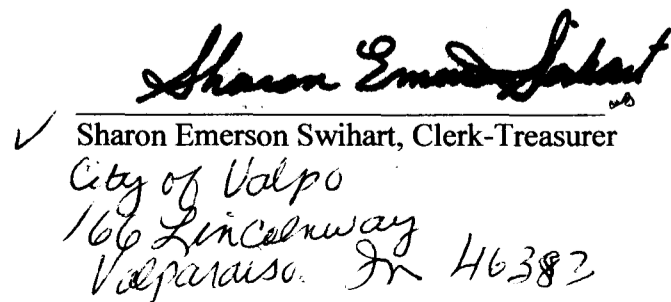 Sharon Emerson Swihart
Sharon Emerson Swihart, Clerk-Treasurer
City of Valpo
166 Lincolnway
Valparaiso In 46383